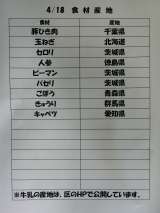 4/18 食材産地
食材 産地
豚ひき肉 千葉県
玉ねぎ 北海道
セロリ 茨城県
人参 徳島県
ピーマン 茨城県
パセリ 茨城県
ごぼう 青森県
きゅうり 群馬県
キャベツ 愛知県
※牛乳の産地は、区のHPで公開しています。